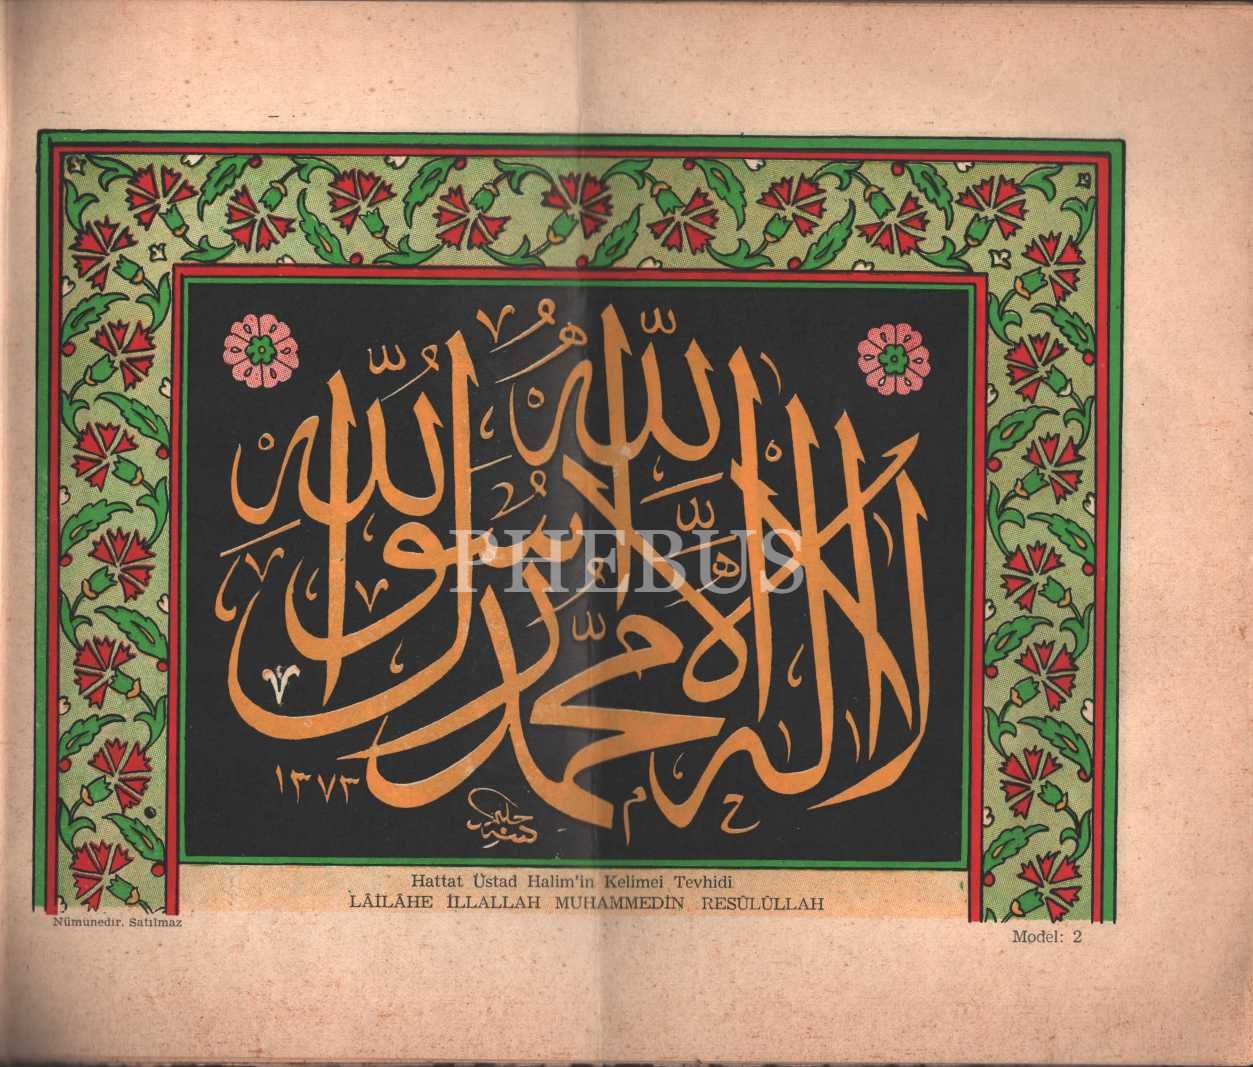 لا اله الا الله محمد رسول الله
١٣٧٣
كتبه حليم
PHEBUS
Hattat Üstad Halim'in Kelimei Tevhidî
LÂİLÂHE İLLALLAH MUHAMMEDİN RESÛLÜLLAH
Nümunedir. Satılmaz
Model: 2